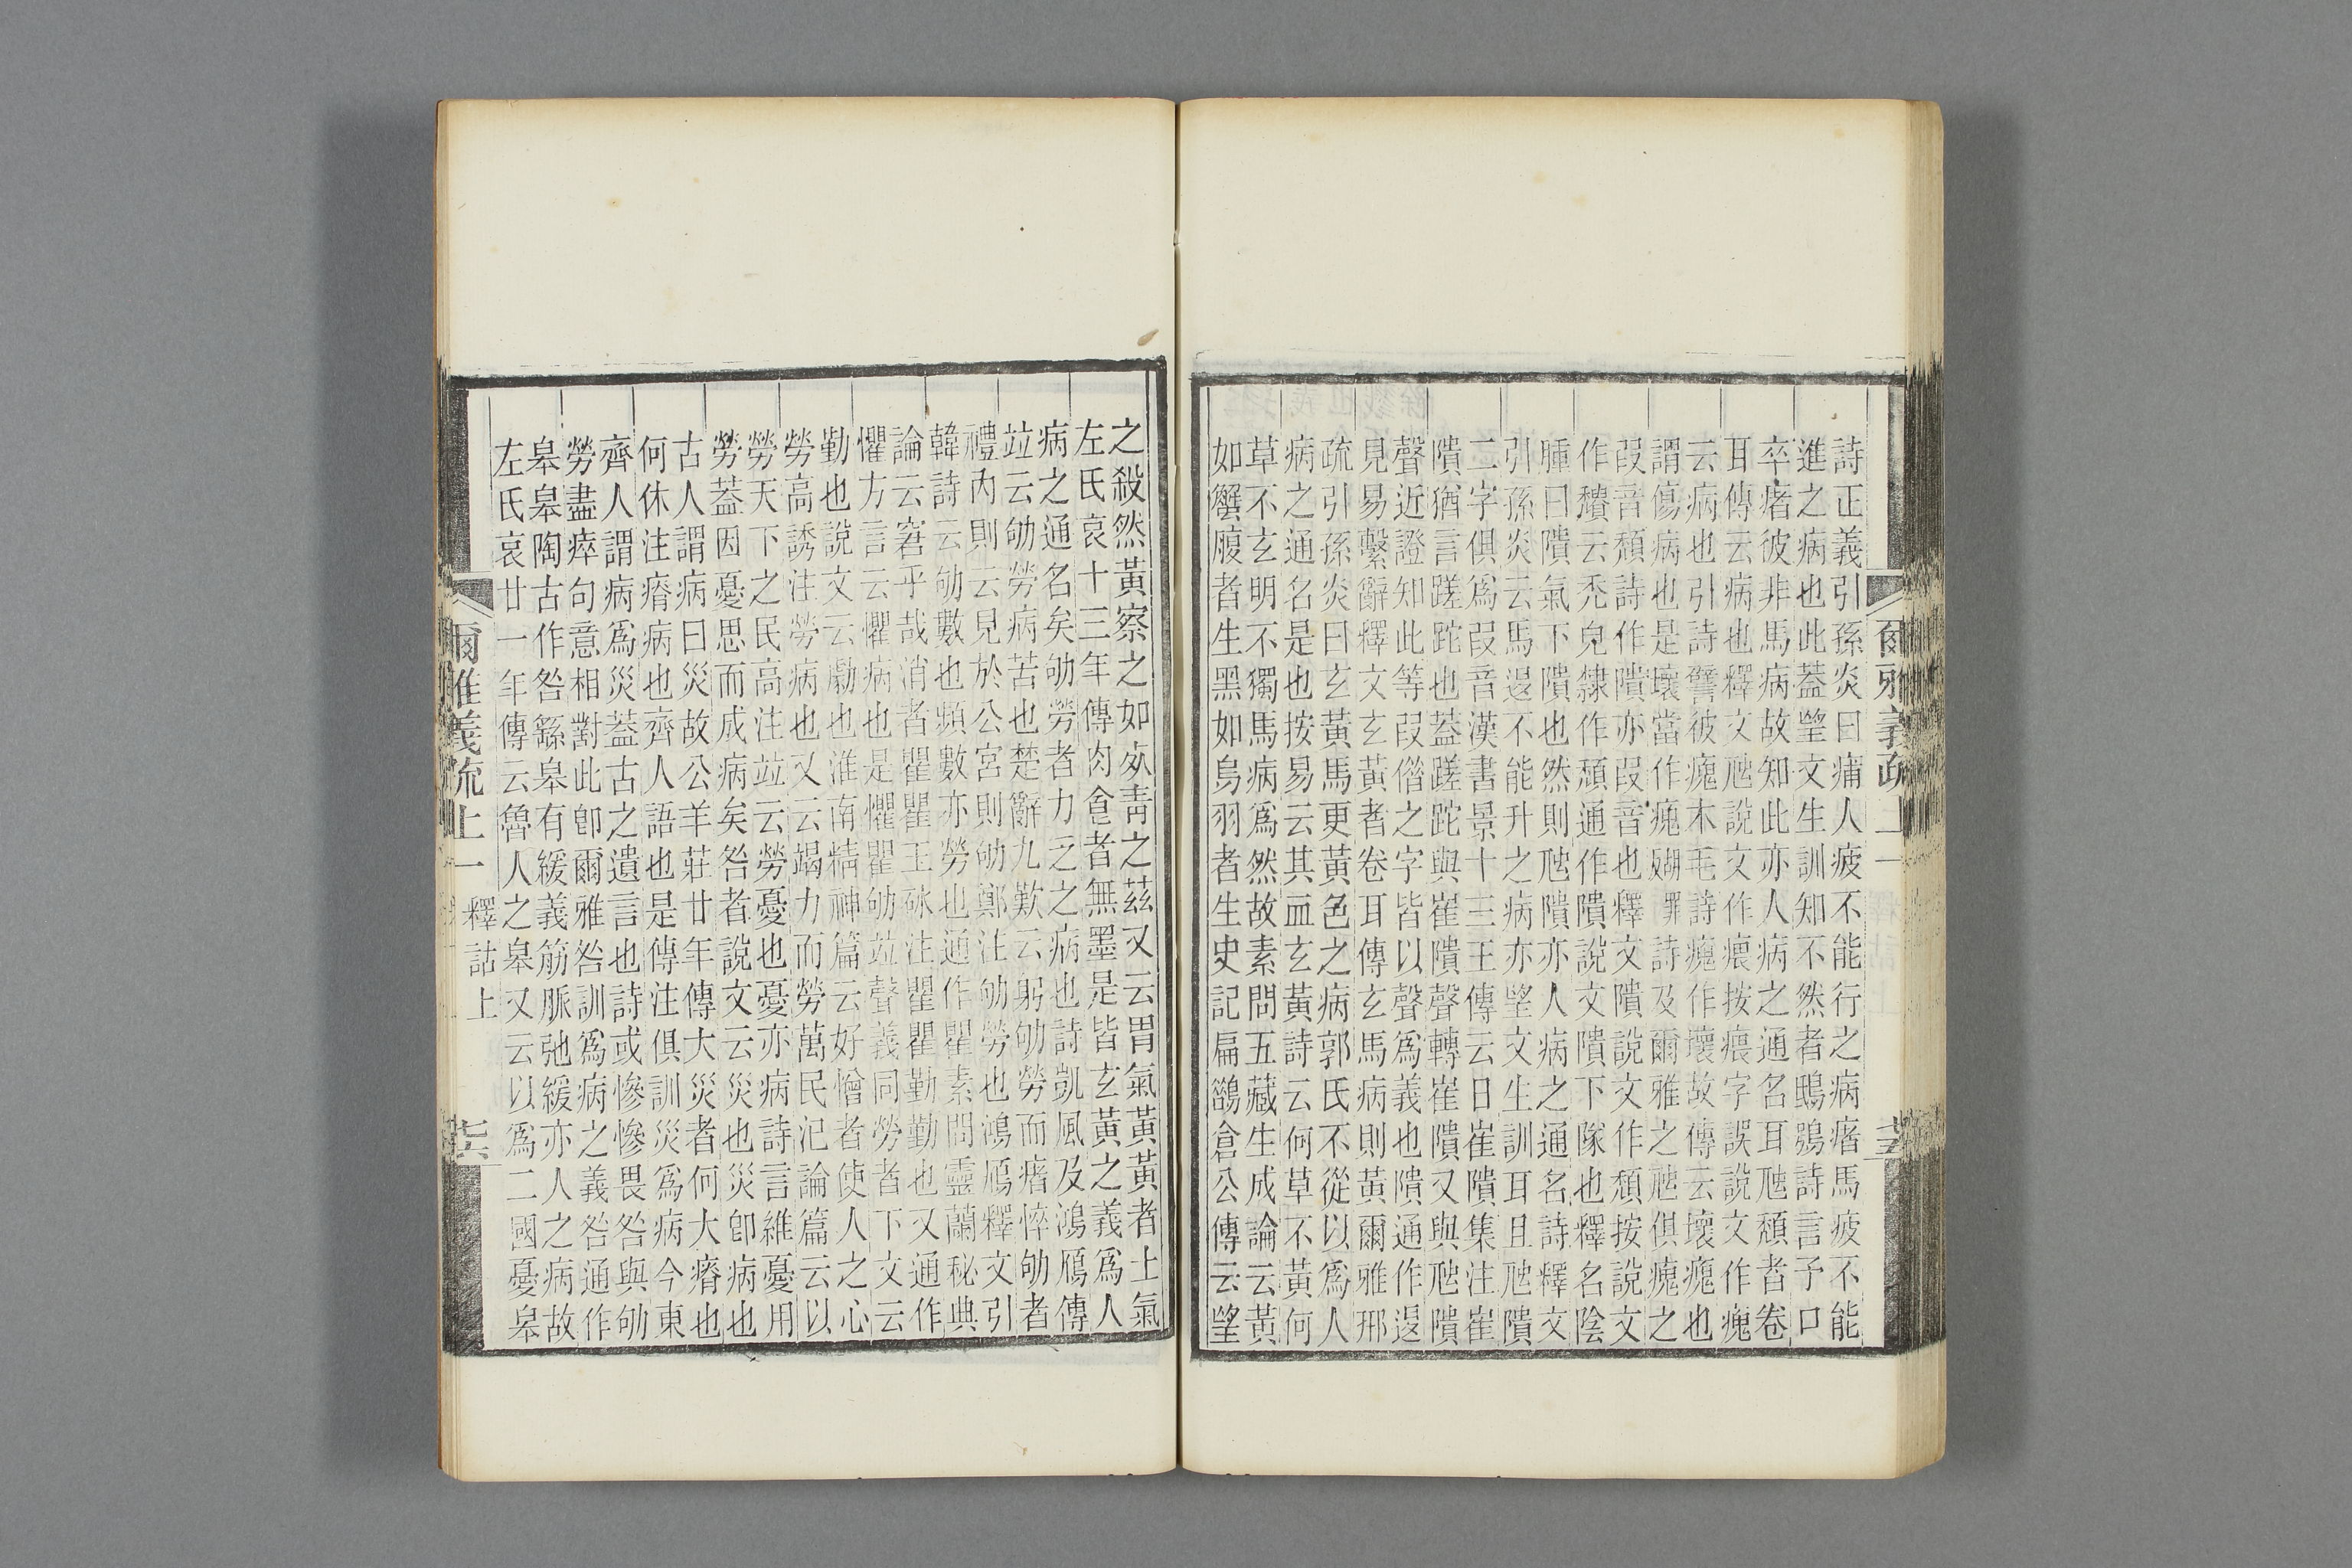 爾雅義疏上一
詩正義引孫炎曰痡人疲不能行之病瘏馬疲不能
進之病也此蓋望文生訓知不然者鴟鴞詩言予口
卒瘏彼非馬病故知此亦人病之通名耳虺頽者卷
耳傳云病也釋文虺說文作㾯按㾯字誤說文作瘣
云病也引詩譬彼瘣木毛詩瘣作壞故傳云壞瘣也
謂傷病也是壞當作瘣罪詩及爾雅之虺俱瘣之
叚音頽詩作隤亦叚音也釋文隤說文作頽按說文
作穨云禿皃隸作頽通作隤說文隤下隊也釋名陰
腫曰隤氣下隤也然則虺隤亦人病之通名詩釋文
引孫炎云馬退不能升之病亦望文生訓耳且虺隤
二字俱爲叚音漢書景十三王傳云日崔隤集注崔
隤猶言蹉跎也蓋蹉跎與崔隤聲轉崔隤又與虺隤
聲近證知此等叚偺之字皆以聲爲義也隤通作退
見易繫辭釋文玄黃者卷耳傳玄馬病則黃爾雅邢
疏引孫炎曰玄黃馬更黃色之病郭氏不從以爲人
病之通名是也按易云其血玄黃詩云何草不黃何
草不玄明不獨馬病爲然故素問五藏生成論云黃
如蟹腹者生黑如烏羽者生史記扁鵲倉公傳云望
之殺然黃察之如𣦸靑之茲又云胃氣黃黃者土氣
左氏哀十三年傳肉𠊊者無墨是皆玄黃之義爲人
病之通名矣劬勞者力乏之病也詩凱風及鴻鴈傳
竝云劬勞病苦也楚辭九歎云躬劬勞而瘏悴劬者
禮內則云見於公宮則劬鄭注劬勞也鴻鴈釋文引
韓詩云劬數也頻數亦勞也通作瞿素問靈蘭秘典
論云窘乎哉消者瞿瞿王砅注瞿瞿勤勤也又通作
懼方言云懼病也是懼瞿劬竝聲義同勞者下文云
勤也說文云勮也淮南精神篇云好憎者使人之心
勞高誘注勞病也又云竭力而勞萬民氾論篇云以
勞天下之民高注竝云勞憂也憂亦病詩言維憂用
勞蓋因憂思而成病矣咎者說文云災也災卽病也
古人謂病曰災故公羊莊廿年傳大災者何大瘠也
何休注瘠病也齊人語也是傳注俱訓災爲病今東
齊人謂病爲災蓋古之遺言也詩或慘慘畏咎與劬
勞盡瘁句意相對此卽爾雅咎訓爲病之義咎通作
皋皋陶古作咎繇皋有緩義筋脈弛緩亦人之病故
左氏哀廿一年傳云魯人之皋又云以爲二國憂皋
爾雅義疏上一 釋詁上 七十六